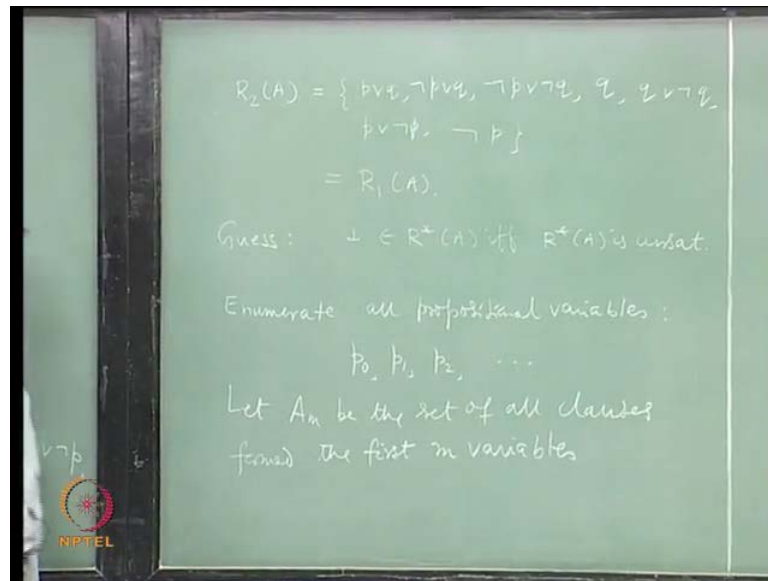 R₂(A) = { p∨q, ¬p∨q, ¬p∨¬q, q, q∨¬q,
p∨¬p, ¬p}
= R₁(A).
Guess: ⊥ ∈ R*(A) iff R*(A) is unsat.
Enumerate all propositional variables :
p₀, p₁, p₂, ...
Let Aₘ be the set of all clauses
formed the first m variables
∨¬p
NPTEL